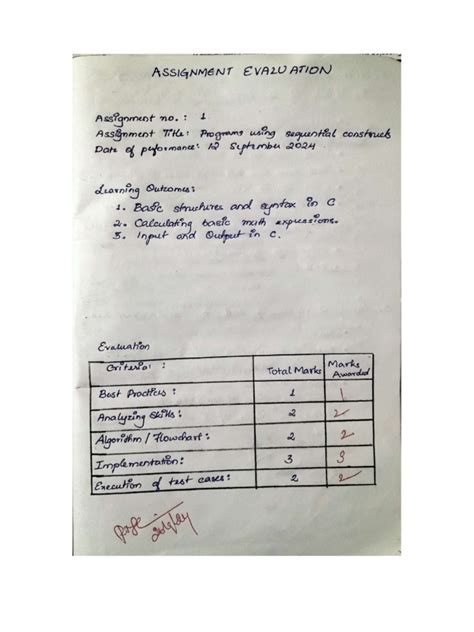 ASSIGNMENT EVALUATION
Assignment no. : 1
Assignment Title: Programs using sequential constructs
Date of performance: 12 September 2024
Learning Outcomes:
1. Basic structures and syntax in C
2. Calculating basic math expressions.
3. Input and Output in C.
Evaluation
Criteria : Total Marks Marks Awarded
Best Practices : 1 1
Analyzing Skills : 2 2
Algorithm / Flowchart : 2 2
Implementation : 3 3
Execution of test cases : 2 2